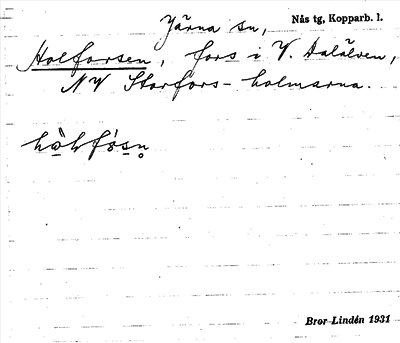 Järna sn, Nås tg, Kopparb. l.
Holforsen, fors i V. Dalälven,
NV Storfors-holmarna.
Bror Lindén 1931